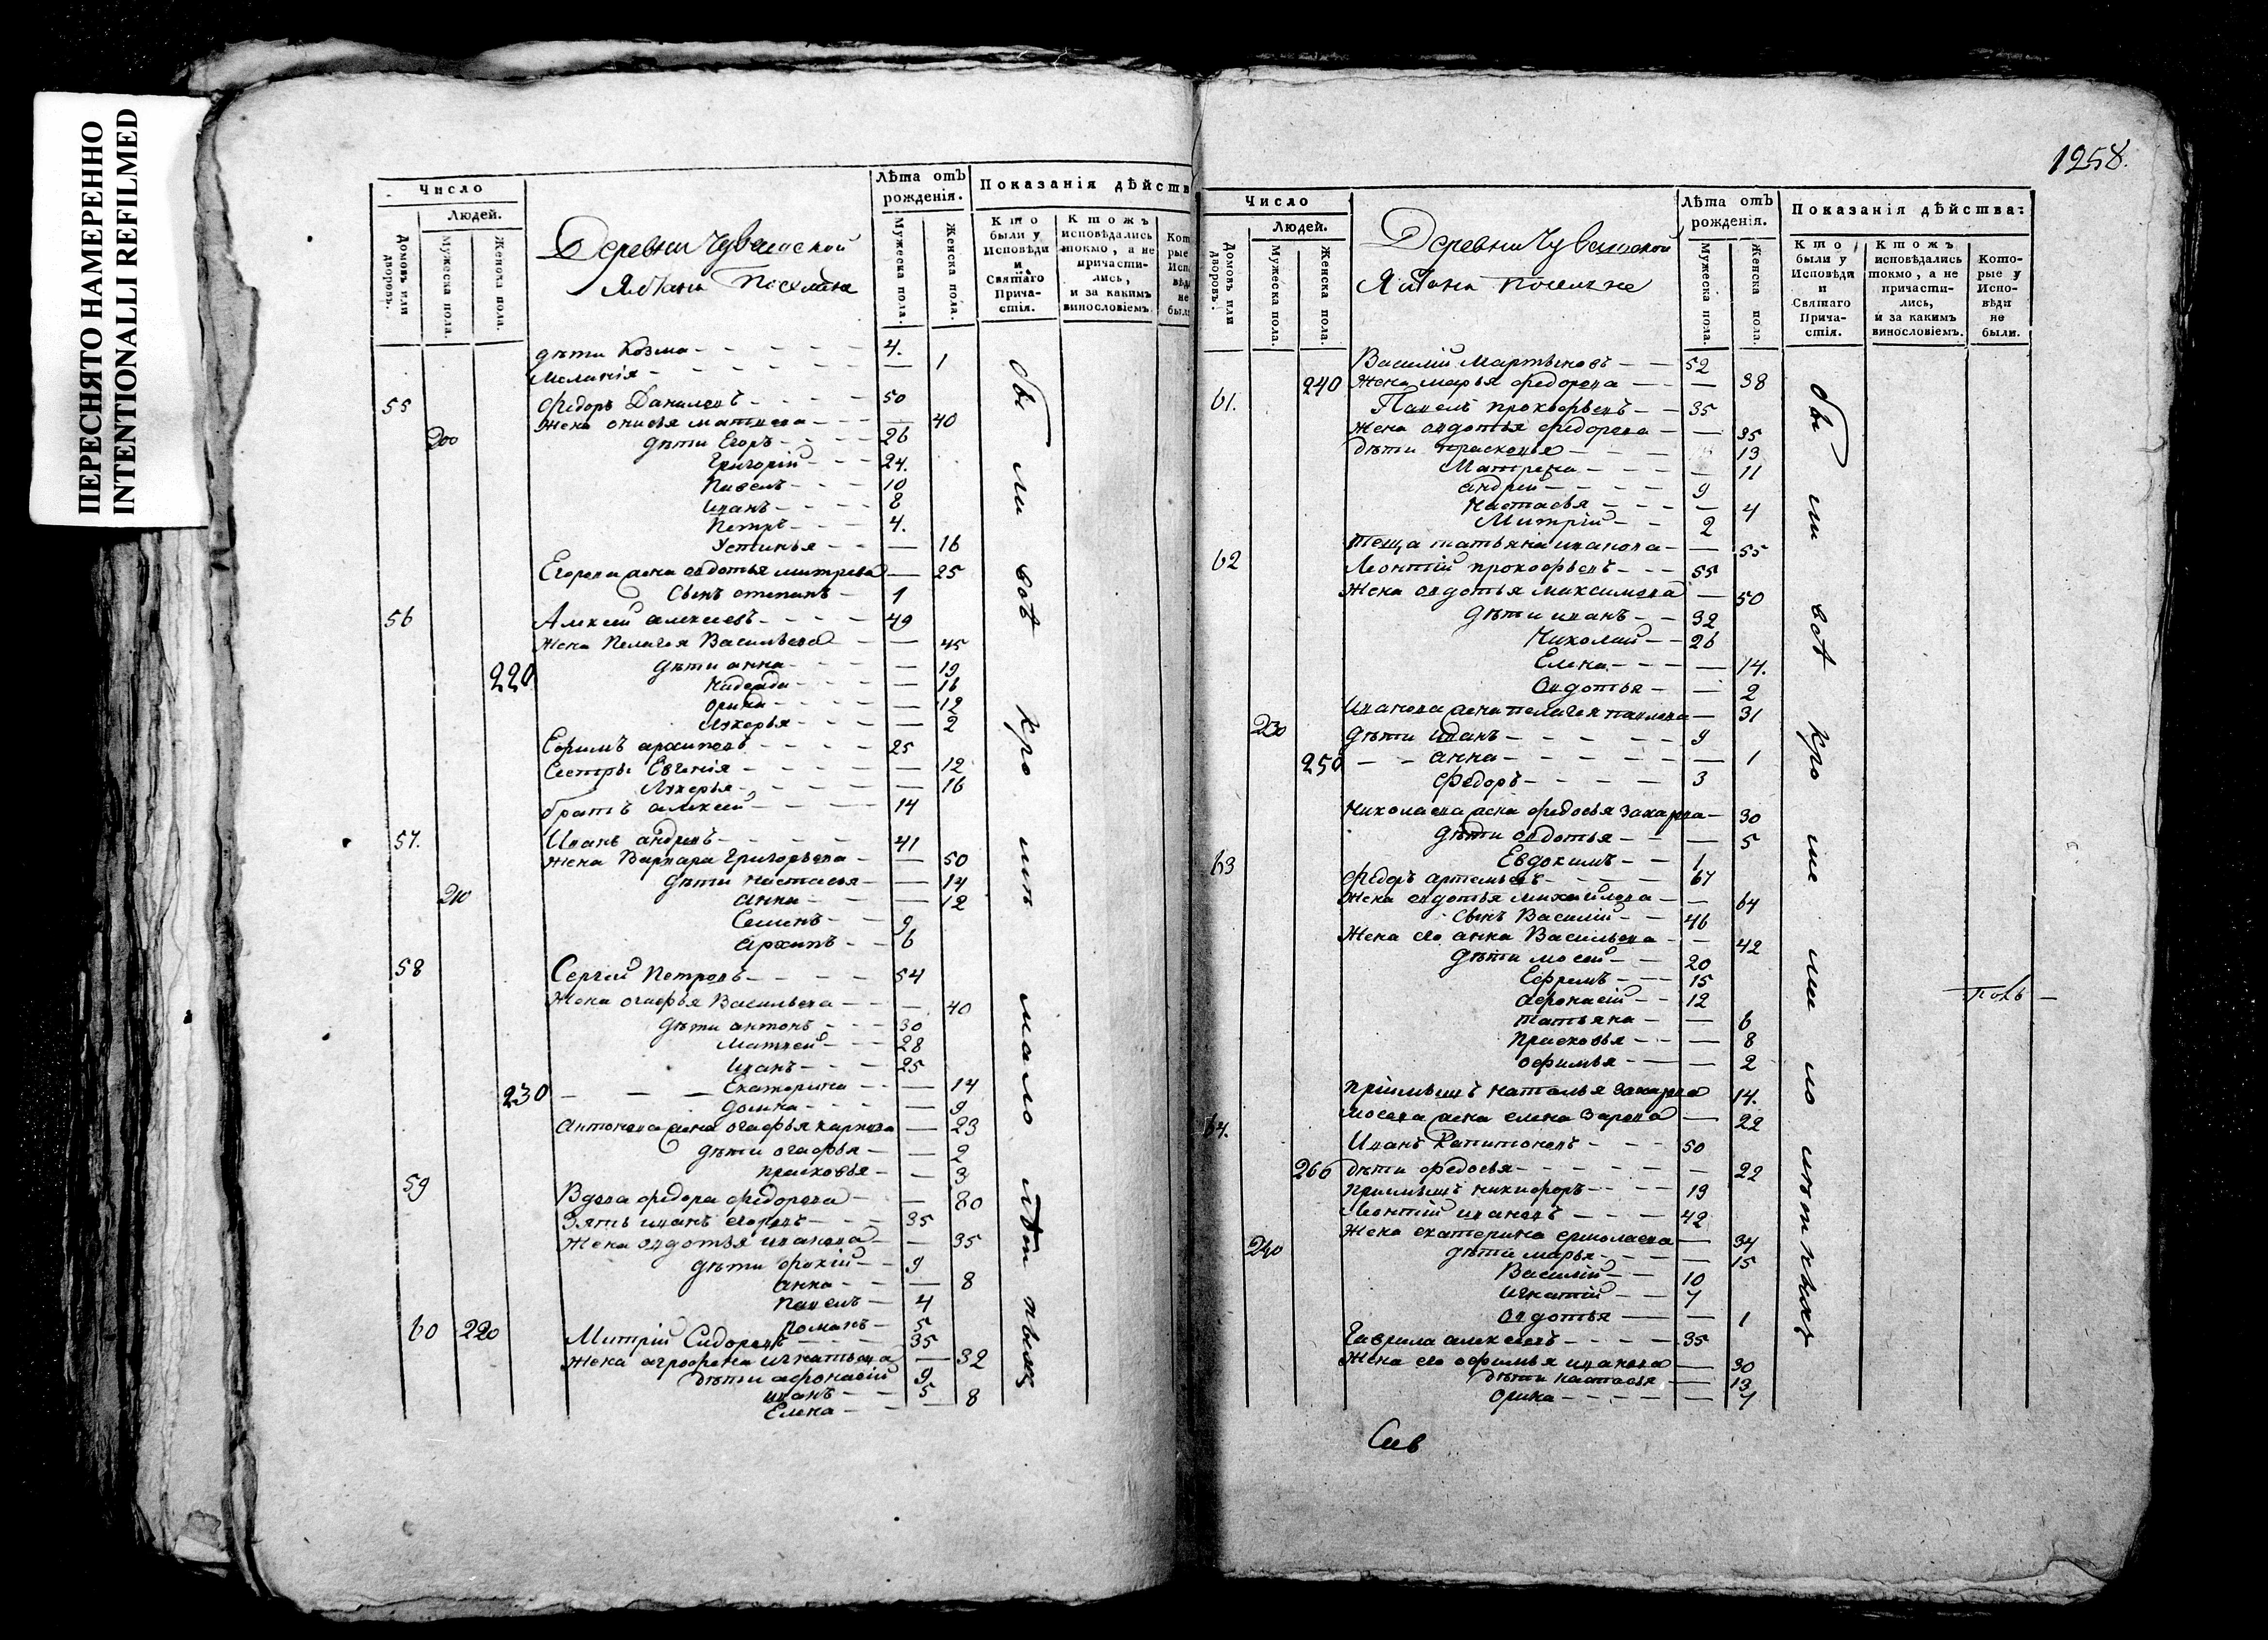 ПЕРЕСНЯТО НАМЕРЕННО
INTENTIONALLI REFILMED
Число
Людей.
Домовъ или дворовъ.
Мужеска пола.
Женска пола.
Деревни Чувашской
Лѣта отъ рожденія.
Мужеска пола.
Женска пола.
Показанія дѣйств
Кто были у Исповѣди и Святаго Причастія.
Ктожъ исповѣдались токмо, а не причастились, и за какимъ винословіемъ.
дѣти Козма - 4.
Меланія - 1
55 Федоръ Данилевъ - 50
жена 40
200 дѣти Егоръ - 26
Григорій - 24.
Павелъ - 10
Иванъ - 8
Петръ - 4.
Устинья - 16
Егорова жена овдотья митрева - 25
Сынъ степанъ - 1
56 Алексей алексеевъ - 49
жена Пелагея Васильева - 45
220 дѣти анна - 19
Надежда - 16
орина - 12
Лукерья - 2
Ефимъ архиповъ - 25
Сестры Евгенія - 12
Лукерья - 16
братъ алексей - 14
57. Иванъ андреевъ - 41
жена Варвара Григорьева - 50
дѣти настасья - 14
210 анна - 12
Семенъ - 9
архипъ - 6
58 Сергей Петровъ - 54
жена огафья Васильева - 40
дѣти антонъ - 30
Матвей - 28
Иванъ - 25
230 Екатерина - 14
домна - 9
Антонова жена огафья карпова - 23
дѣти огафья - 2
прасковья - 3
59 Вдова федора федорова - 80
Зять иванъ егоровъ - 35
жена овдотья иванова - 35
дѣти 9
анна - 8
павелъ - 4
романъ - 5
60 220 Митрій Сидоровъ - 35
жена агрофена игнатьева - 32
дѣти афонасій 9
иванъ - 5
Елена - 8
бы ли всѣ кро мѣ мало лѣт ныхъ
1258.
Число
Людей.
Домовъ или дворовъ.
Мужеска пола.
Женска пола.
Деревни Чувашской
Лѣта отъ рожденія.
Мужеска пола.
Женска пола.
Показанія дѣйства:
Кто были у Исповѣди и Святаго Причастія.
Ктожъ исповѣдались токмо, а не причастились, и за какимъ винословіемъ.
Которые у Исповѣди не были.
Василій Мартыновъ - 52
240 жена марья федорова - 38
61. Павелъ прокофьевъ - 35
жена овдотья федорова - 35
дѣти прасковья - 13
Матрена - 11
андрей - 9
настасья - 4
Митрій - 2
теща татьяна иванова - 55
62 Леонтій прокофьевъ - 55
жена овдотья максимова - 50
дѣти иванъ - 32
Николай - 26
Елена - 14.
Овдотья - 2
Иванова жена пелагея павлова - 31
230 дѣти иванъ - 9
250 анна - 1
федоръ - 3
Николаева жена федосья захарова - 30
дѣти овдотья - 5
Евдокимъ - 1
63 Федоръ артемьевъ - 67
жена овдотья михайлова - 64
Сынъ Василій - 46
жена его анна Васильева - 42
дѣти мосей - 20
Ефремъ - 15
афонасій - 12
татьяна - 6
прасковья - 8
офимья - 2
пріимышъ наталья захарова 14.
мосеева жена елена 22
64. Иванъ Капитоновъ - 50
260 дѣти федосья - 22
пріимышъ никифоръ - 19
Леонтій ивановъ - 42
жена екатерина ермолаева 34
240 дѣти марья - 15
Василій - 10
игнатій - 7
овдотья - 1
Гаврила алексеевъ - 35
жена его офимья иванова - 30
дѣти настасья - 13
орина - 7